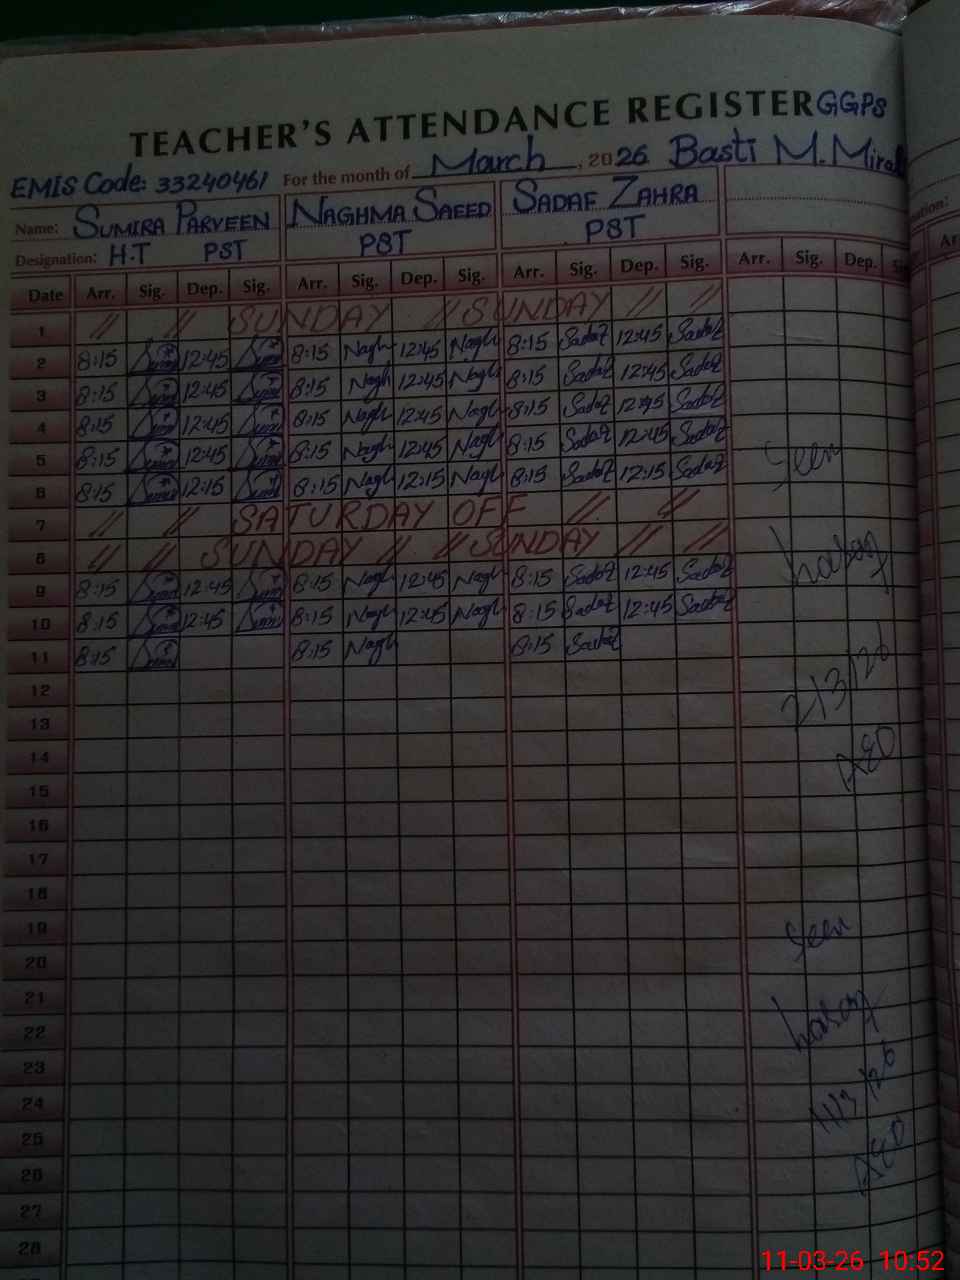 TEACHER'S ATTENDANCE REGISTER GGPS
EMIS Code: 33240461 For the month of March, 2026 Basti M. Miral
Name: SUMIRA PARVEEN NAGHMA SAEED SADAF ZAHRA
Designation: H.T PST PST PST
Date Arr. Sig. Dep. Sig. Arr. Sig. Dep. Sig. Arr. Sig. Dep. Sig. Arr. Sig. Dep.
1 // // SUNDAY // SUNDAY // //
2 8:15 12:45 8:15 Nagh 12:45 Nagh 8:15 Sadaf 12:45 Sadaf
3 8:15 12:45 8:15 Nagh 12:45 Nagh 8:15 Sadaf 12:45 Sadaf
4 8:15 12:45 8:15 Nagh 12:45 Nagh 8:15 Sadaf 12:45 Sadaf
5 8:15 12:45 8:15 Nagh 12:45 Nagh 8:15 Sadaf 12:45 Sadaf
6 8:15 12:15 8:15 Nagh 12:15 Nagh 8:15 Sadaf 12:15 Sadaf
7 // // SATURDAY OFF // //
8 // // SUNDAY // // SUNDAY // //
9 8:15 12:45 8:15 Nagh 12:45 Nagh 8:15 Sadaf 12:45 Sadaf
10 8:15 12:45 8:15 Nagh 12:45 Nagh 8:15 Sadaf 12:45 Sadaf
11 8:15 8:15 Nagh 8:15 Sadaf
12
13
14
15
16
17
18
19
20
21
22
23
24
25
26
27
28
Seen
2/3/26
AEO
Seen
11/3/26
AEO
11-03-26 10:52